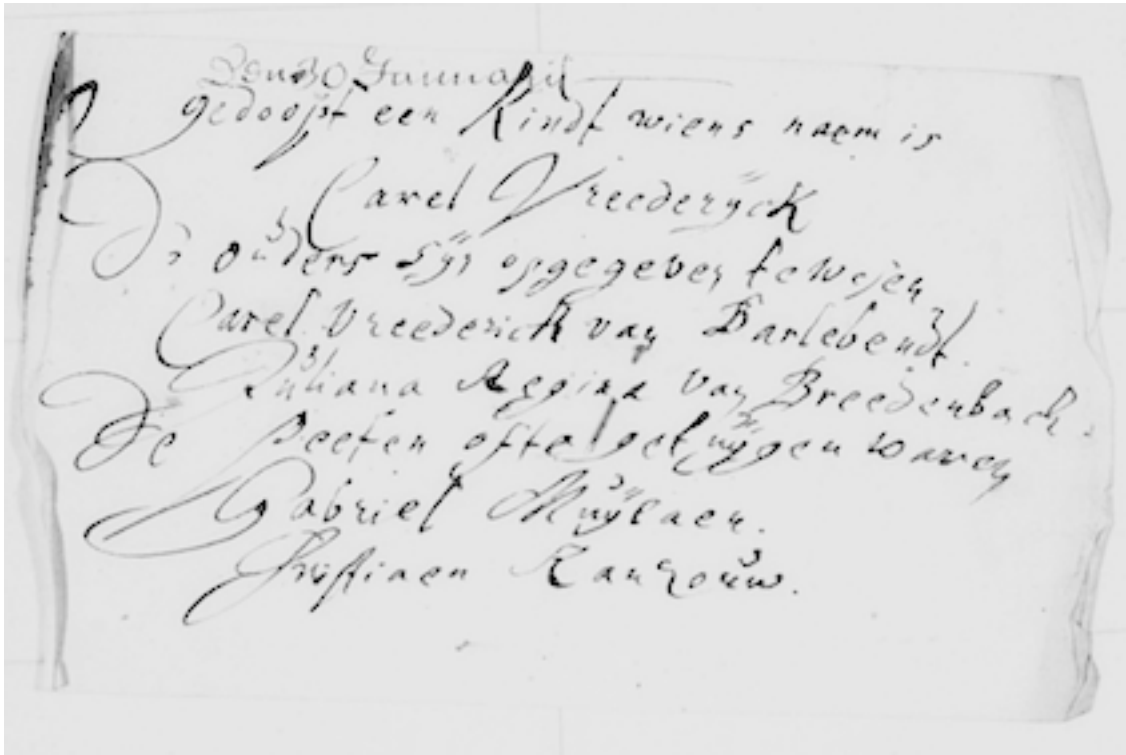 Den 30 Januarii
gedoopt een Kindt wiens naem is
Carel Vreederÿck
De oŭders sÿn opgegeven te wesen
Carel Vreederick van Barlebendt.
Juliana Regina van Breedenbach.
De peeten ofte getuÿgen waren
Gabriel Muÿlaen.
Christiaen Ranzouw.